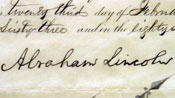 twenty third day of Februa
Sixty three and in the Eighty
Abraham Lincoln